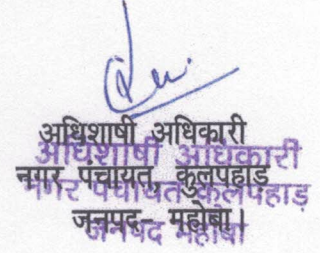 अधिशाषी अधिकारी
अधिशाषी अधिकारी
नगर पंचायत, कुलपहाड़
नगर पंचायत कुलपहाड़
जनपद– महोबा।
जनपद महोबा